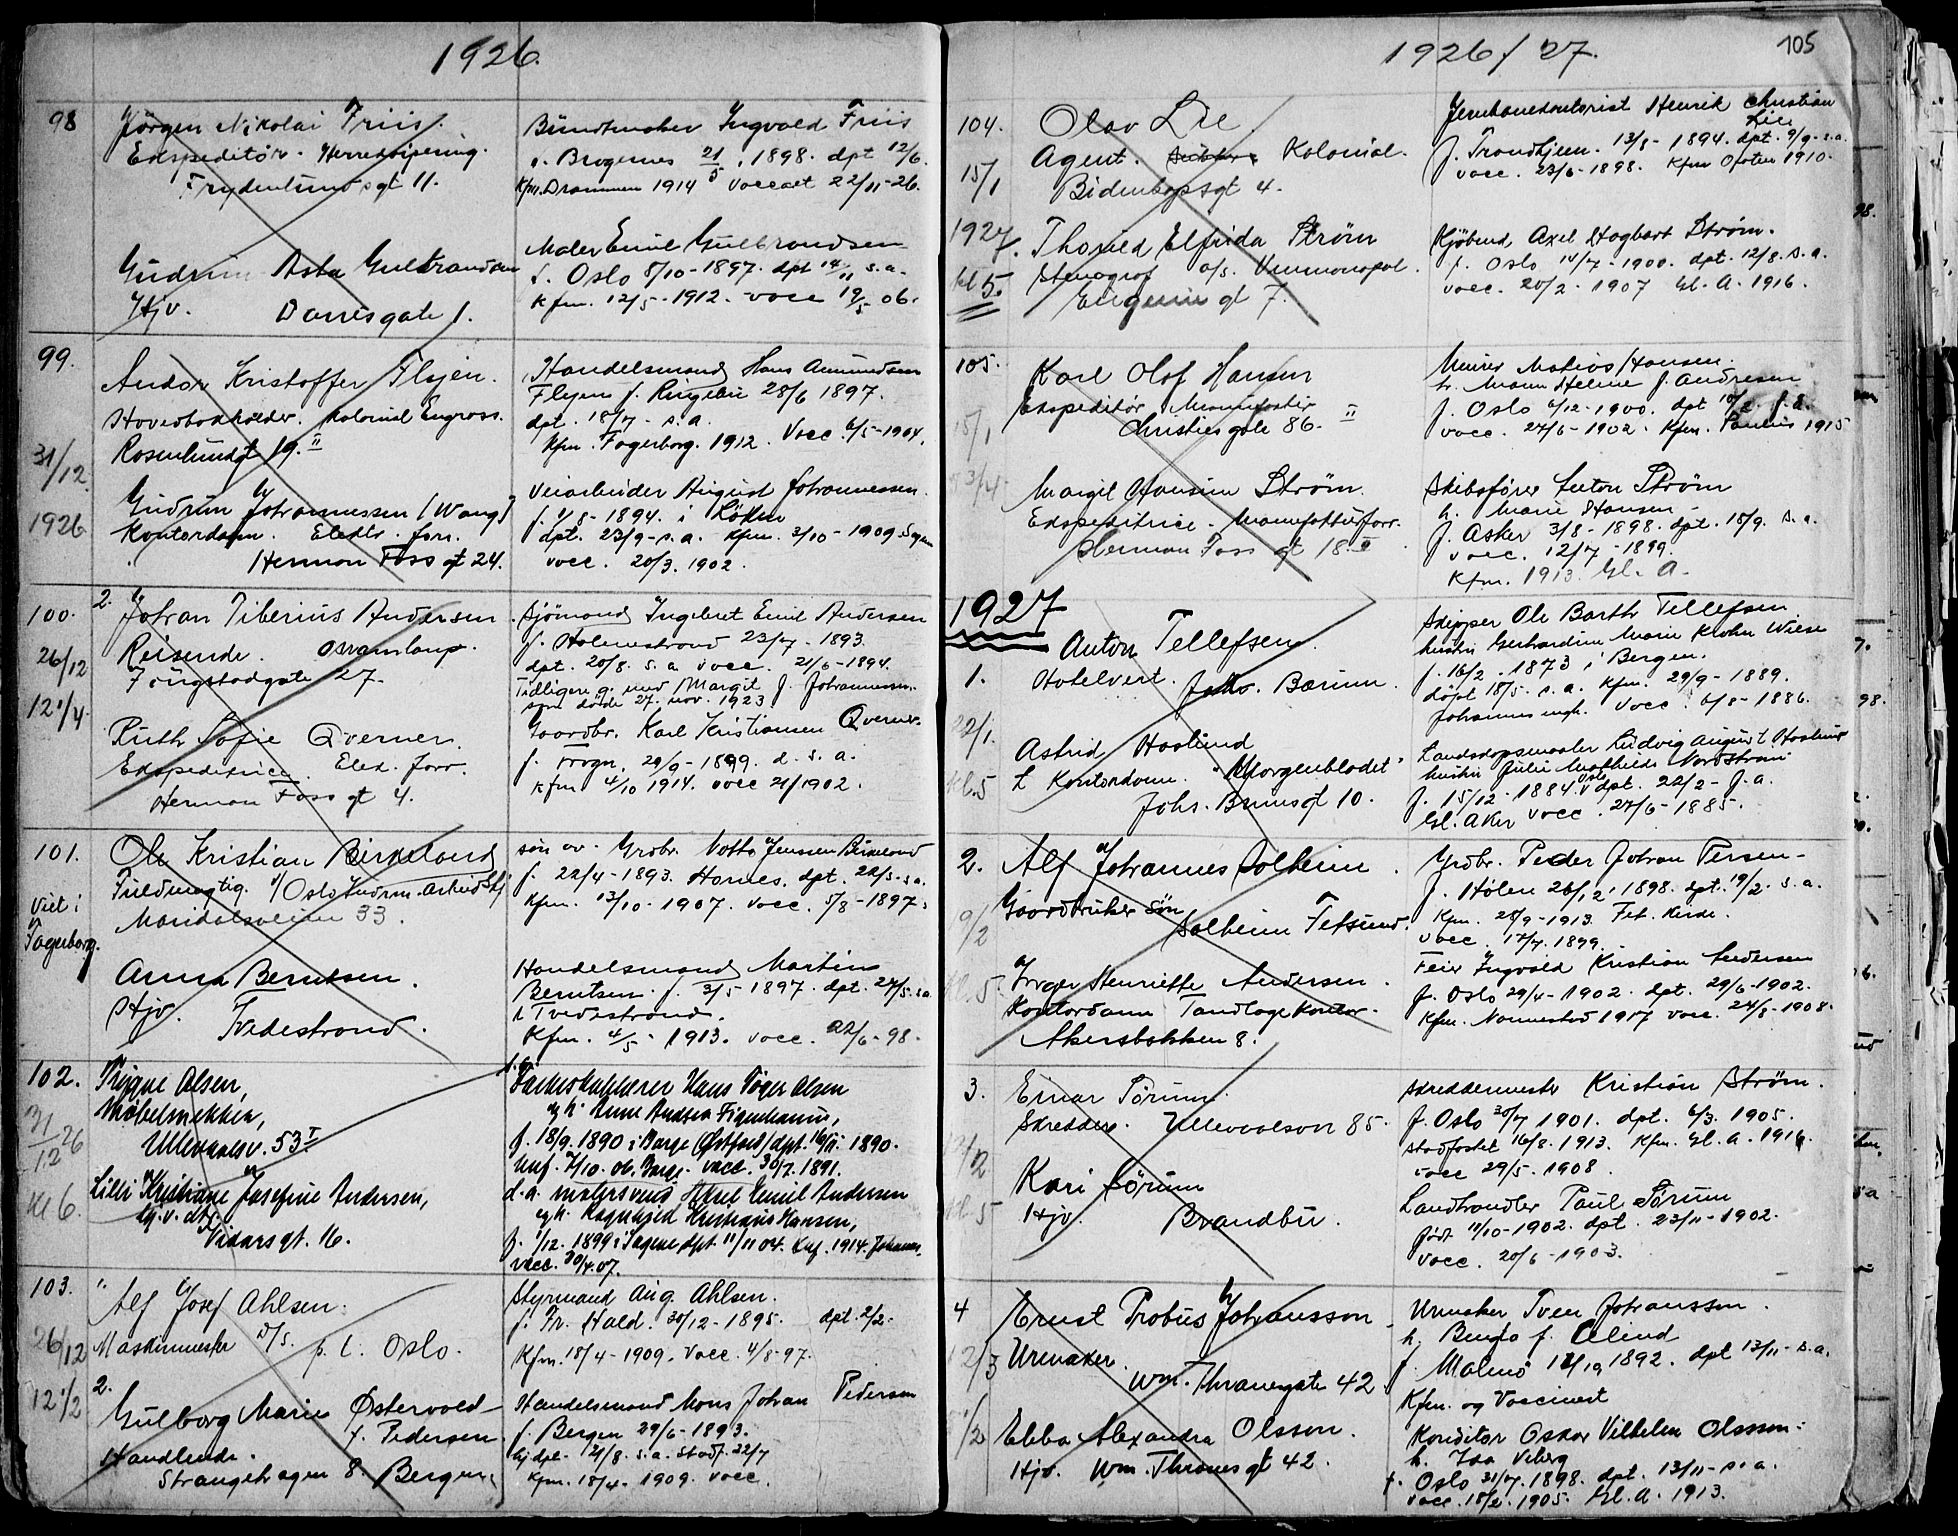 1926.
98
Jörgen Nikolai Friis.
Ekspeditör - Herreekvipering.
Frydenlundsgt 11.
Buntmaker Ingvald Friis
f. Bragernes 21/5 1898. dpt 12/6.
Kfm. Drammen 1914 Vaccaet 22/11-26.
Gudrun Asta Gulbrandsen
Hjv. Darresgate 1.
Maler Emil Gulbrandsen
f. Oslo 5/10-1897. dpt 14/11 s.a.
Kfm. 12/5-1912. vacc 19/5 06.
99.
31/12
1926
Andor Kristoffer Flojen.
Hovedbokholder. Kolonial Engross.
Rosenlundgt 19. II
Handelsmand Hans Amundsen
Flyen f. Ringebu 28/6 1897.
dpt. 18/7 - s.a.
Kfm. Fagerborg. 1912. Vacc 6/5-1904.
Gudrun Johannessen (Wang)
Kontordam. Elektr. forr.
Herman Foss gt 24.
Veiarbeider August Johannessen.
f. 4/8-1894. i Löken
dpt. 23/9-s.a. Kfm. 3/10-1909 Sagene
vacc. 20/3. 1902.
100.
26/12
12 1/4
2. Johan Tiberius Andersen
Reisende. Osramlamp.
Tougstadgate 27.
Sjömand Ingebret Emil Andersen
f. Holmestrand 23/7 - 1893.
dpt. 20/8. s.a vacc. 21/6-1894.
Tidligere g. med Margit f. Johannessen.
som döde 27. nov. 1923
Ruth Sofie Qverner.
Ekspeditrice. Elek. forr.
Herman Foss gt 4.
Gaardbr. Karl Kristiansen Qverner
f. Frogn. 29/9-1899. d. s. a.
Kfm 4/10 1914. vacc 21/1902.
101.
Viet i
Fagerborg.
Ole Kristian Birkeland
Fuldmægtig. v/ Oslo Indrm. Arbeidskj
Maridalsveien 33.
søn av. Grdbr. Notto Jenssen Birkeland
f. 22/4-1893. Hornes. dpt. 22/5-s.a.
Kfm. 13/10-1907. vacc. 5/8-1897.
Anna Berntsen.
Hjv. Tvedestrand.
Handelsmand Martin
Berntsen. f. 3/5 1897. dpt. 27/5. s.a
i Tvedestrand.
Kfm. 4/5 - 1913. vacc. 22/6-98.
102.
31/12 26
Kl 6.
Trygve Olsen,
Møbelsnekker,
Ullevaalsv. 53 I
Hans Olsen
og h. Anne Andrea
f. 18/9. 1890 i Borge (Østfold) dpt. 16/11. 1890.
Unf. 7/10. 06. Borge. vacc. 30/7. 1891.
Lilli Kristiane Josefine Andersen,
Vidarsgt. 16.
d.a. malersvend Axel Emil Andersen
og h. Ragnhild Kristiane Hansen,
f. 1/12. 1899 i Sagene dpt. 11/11 04. Knf. 1914. Johannes.
vacc. 30/4. 07.
103.
26/12
12 1/2
Alf Josef Ahlsen.
Maskinmester D/S. p. t. Oslo.
Styrmand Aug. Ahlsen.
f. Fr. Hald. 30/12-1895. dpt. 2/2-
Kfm. 18/4-1909. Vacc. 4/8-97.
2. Gulborg Marie Østervold
f. Pedersen
Handlende.
Strangehagen 8. Bergen.
Handelsmand Mons Johan Pedersen
f. Bergen 29/6-1893.
hj.dpt. 21/8. s.a. Stadf. 22/7
Kfm. 18/4-1909. vacc.
1926/27.
105
104.
15/1
1927.
kl 5.
Olav Lie
Agent. Kolonial.
Bidenkapsgt 4.
Jernbanekontorist Henrik Christian
Lie
f. Trondhjem. 13/8-1894. dpt. 9/9-s.a.
vacc. 23/6-1898. Kfm Ofoten 1910.
Thorvld Elfrida Strøm
Stenograf a/s. Vinmonopol.
Eugenie gt 7.
Kjöbmd Axel Hagbart Strøm.
f. Oslo 14/7-1900. dpt. 12/8. s.a.
vacc. 20/2. 1907 Gl. A. 1916.
105.
15/1
3/4
Karl Olof Hansen
Ekspeditör Manufaktur
Christiesgate 86. II
Murer Matias Hansen.
h. Anna Helene f. Andresen
f. Oslo 6/12-1900. dpt 10/2. f. å.
vacc. 24/6-1902. Kfm. Paulus 1915
Margit Hansien Strøm.
Ekspeditrice - Manufakturforr.
Herman Foss gt 18. II
Skibsfører Anton Strøm
h. Marie Hansen
f. Asker 3/8-1898. dpt. 18/9. s.a.
vacc. 12/7-1899.
Kfm. 1913. Gl. A.
1927
1.
22/1.
kl. 5
Anton Tellefsen.
Hotelvert. Bærum.
Skipper Ole Barth Tellefsen
hustru Gerhardine Marie Krohn Wiese
f. 16/2. 1873 i Bergen.
döpt 18/5. s.a. Kfm. 29/9-1889.
Johannes mgh. Vacc. 6/8-1886.
Astrid Haslund
t Kontordame. "Morgenbladet"
Johs. Brunsgt 10.
Landskapsmaler Ludvig August Haslund
hustru Julie Mathilde Nordstrøm
f. 15/12-1884. Oslo dpt. 22/2-f.a.
Gl. Aker vacc. 27/6-1885.
2.
9/2
kl. 5.
Alf Johannes Solheim.
Gaardbruker Søn
Solheim Fetsund.
Grdbr. Peder Johan Persen-
f. Hölen 26/12. 1898. dpt. 19/2. s.a.
Kfm. 28/9-1913. Fet. Kirke.
vacc. 17/7. 1899.
Inger Henriette Andersen.
Kontordame Tandlægekontor.
Akersbakken 8.
Feier Ingvald Kristian Andersen
f. Oslo 29/4-1902. dpt. 29/6-1902.
Kfm. Nannestad 1917 vacc. 24/8-1908.
3.
kl. 5
Einar Sörum.
Skredder. Ullevaalsvn 85.
Skreddermester Kristian Strøm.
f. Oslo 30/7 1901. dpt. 6/3. 1905.
stadfæstet 16/8. 1913. Kfm. Gl. A. 1916.
vacc 29/5-1908.
Kari Sörum
Hjv. Brandbu.
Landhandler Paul Sörum
født 11/10-1902. dpt. 23/11-1902.
Vacc. 20/6-1903.
4
12/3
1/2
Ernst Probus Johansson
Urmaker.
Wm. Thranesgate 42
Urmaker Sven Johansson.
h. Bengta f. Celind
f. Malmö 12/10 1892. dpt 13/11-s.a.
Kfm. og Vaccinert
Ebba Alexandra Olsson.
Hjv. Wm. Thranes gt 42.
Konditor Oskar Vilhelm Olsson.
h. Ida Viberg
f. Oslo 31/7. 1898. dpt. 13/11-s.a.
vacc. 18/2. 1905. Gl. A. 1913.